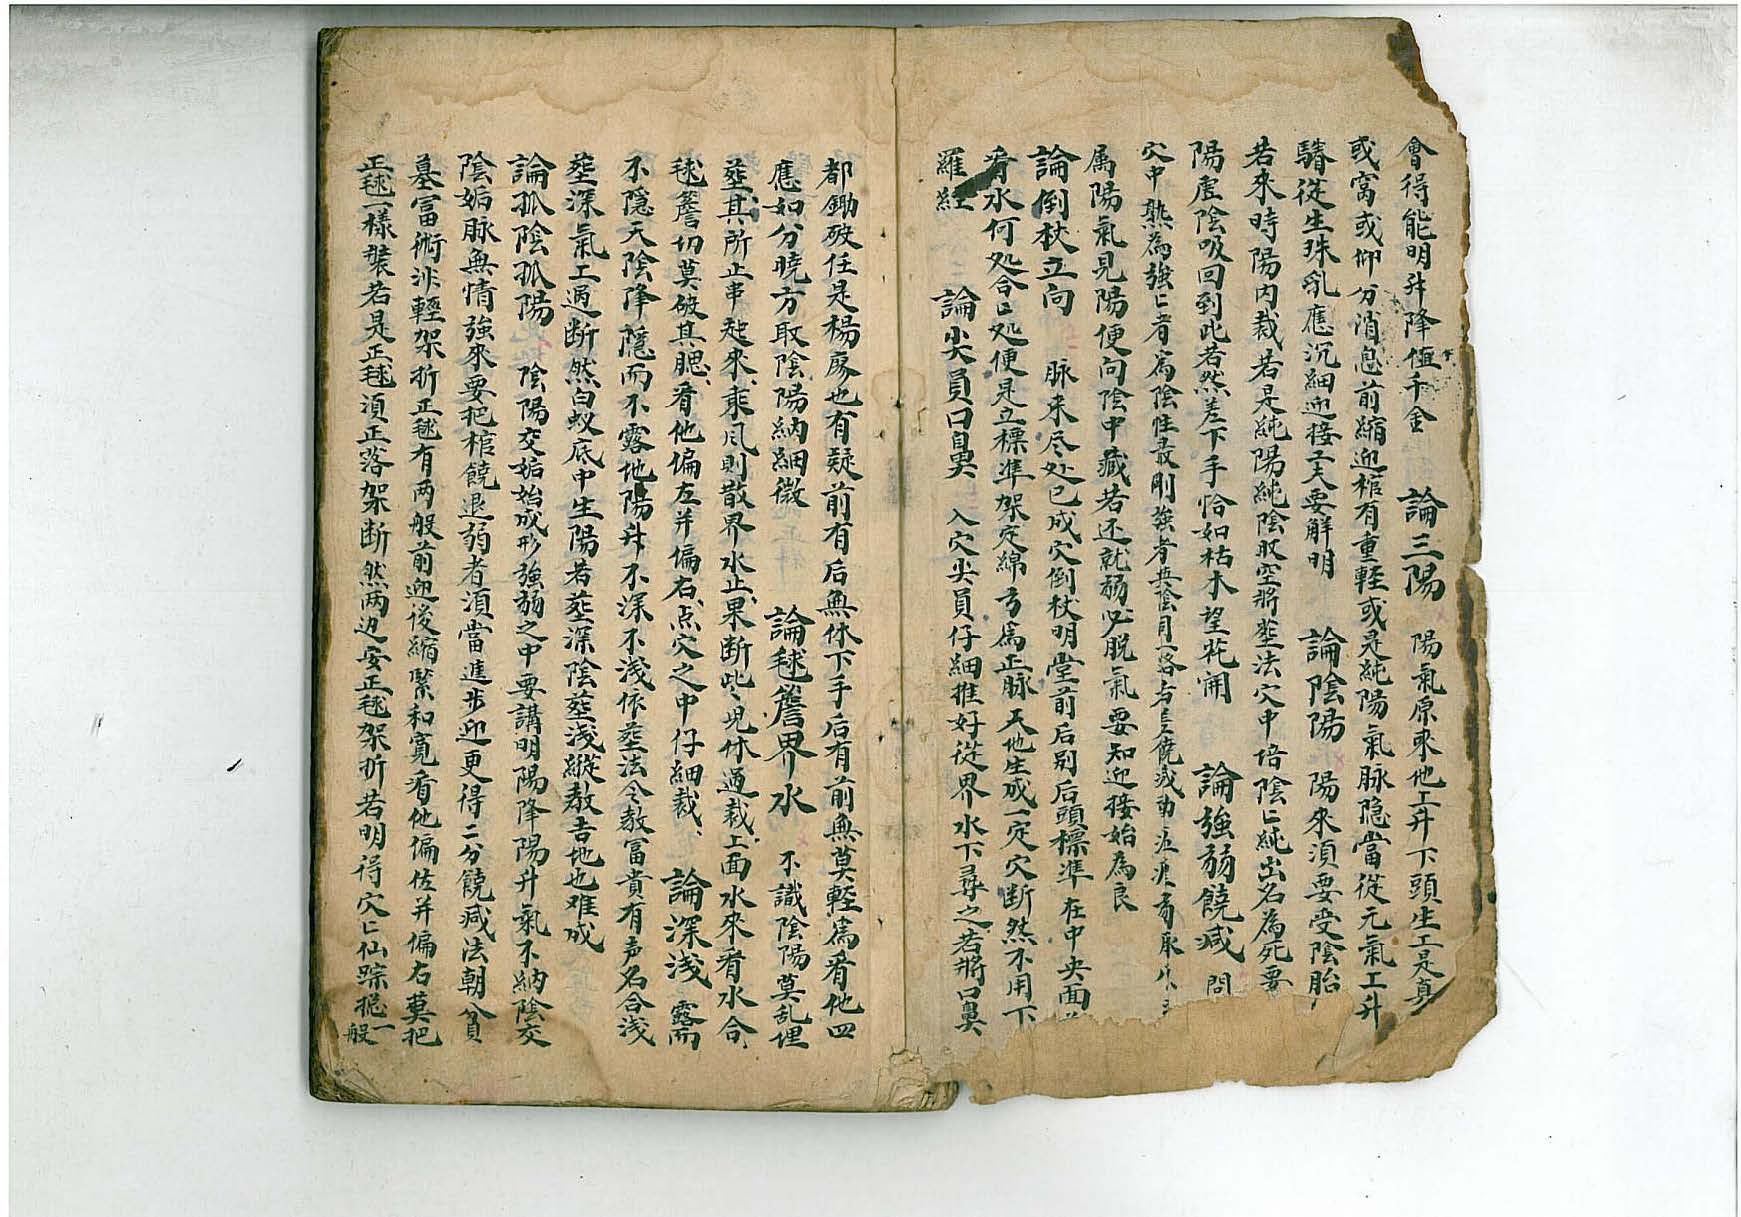 會得能明升降值千金 論三陽 陽氣原來他上升下頭生工是真
或窩或仰分消息前縮迎棺有重輕或是純陽氣脉隐當從元氣工升
騎從生珠乳應沉細迎接工夫要解明 論陰陽 陽來湏要受陰胎
若來時陽内裁若是純陽純陰収空將塟法穴中培陰匕純出名為死要
陽虗陰吸回到此若然差下手恰如枯木望花開 論強弱饒减 問
穴中熟為強匕者為陰性最剛強者與陰同一路
属陽氣見陽便向陰中藏若还就弱必脱氣要知迎接始為良
論倒杖立向 脉来尽处已成穴倒杖明堂前后别后頭標準在中央面
看水何処合匕処便是立標準架定綿方爲正脉天地生成一定穴断然不用下
羅經 論尖員口鼻 入穴尖員仔細推好從界水下尋之若將口鼻
都鋤破任是楊廖也有疑前有后無休下手后有前無莫輕爲看他四
應如分曉方取陰陽納細微 論毬簷界水 不識陰陽莫乱埋
塟其所止串起來乘风則散界水止果断些児休過裁上面水來看水合
毬簷切莫破其腮看他偏左并偏右点穴之中仔細裁 論深浅 露而
不隐天陰降隐而不露地陽升不深不浅作塟法令教富貴有声名合浅
塟深氣工過断然白蚁底中生陽若塟深陰塟浅縱教吉地也难成
論孤陰孤陽 陰陽交姤始成形強弱之中要講明陽降陽升氣不納陰交
陰姤脉無情強來要把棺饒退弱者湏當進步迎更得二分饒减法朝貧
墓富術非輕架折正毬有两般前迎後縮緊和寛看他偏佐并偏右莫把
正毬一樣裝若是正毬湏正落架断然两边安正毬架折若明得穴匕仙踪捴一般